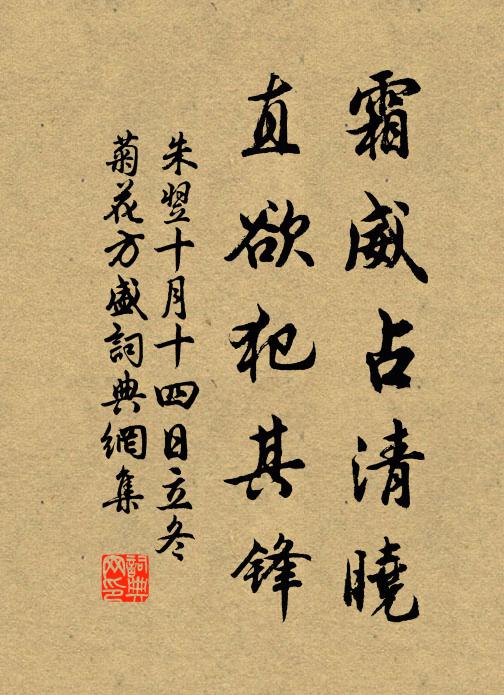 霜威占清曉
直欲犯其鋒
朱翌十月十四日立冬
菊花方盛詞典網集
詞典
网印